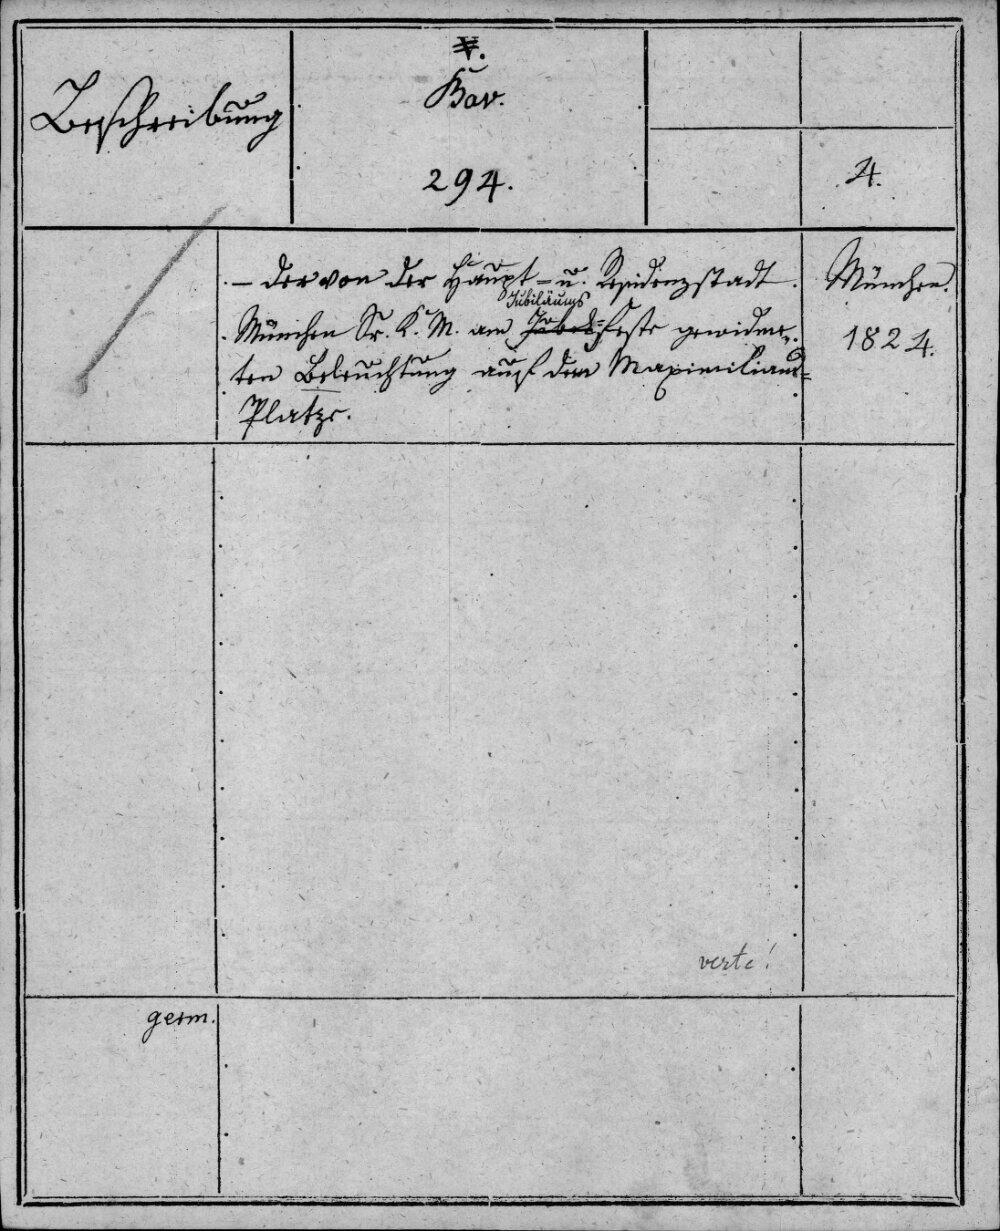 Beschreibung
Bav.
294.
4.
- der von der Haupt- u. Residenzstadt
München Sr. K. M. am Jubiläums
Jubel-feste gewidme-
ten Beleuchtung auf dem Maximilians-
Platze.
München.
1824.
verte!
germ.